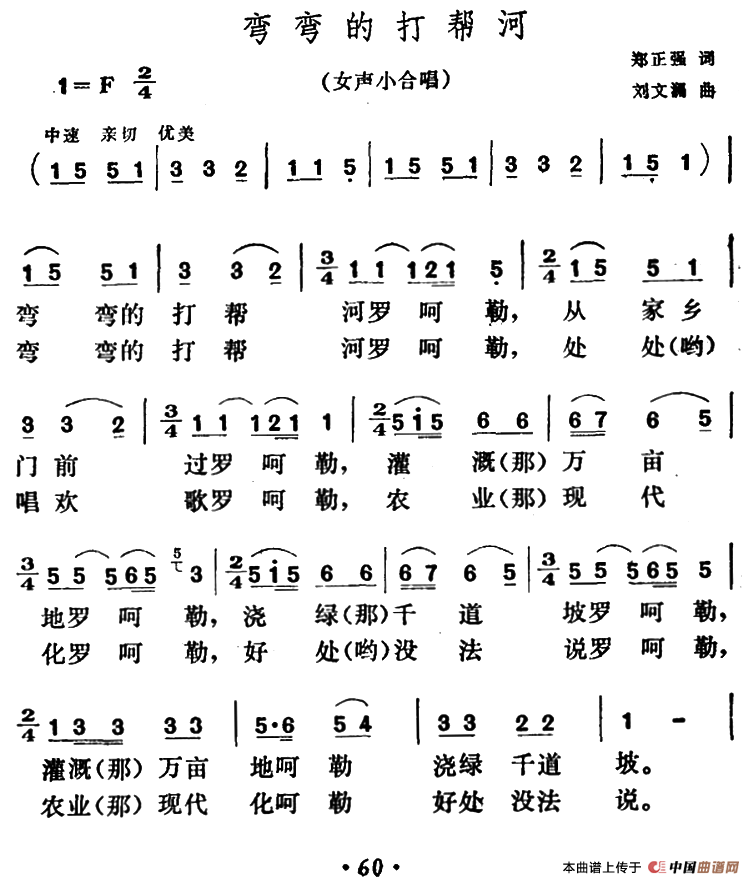 弯弯的打帮河
郑正强 词
1=F 2/4 (女声小合唱)
刘文 曲
中速 亲切 优美
(1 5 5 1 | 3 3 2 | 1 1 5 | 1 5 5 1 | 3 3 2 | 1 5 1)
1 5 5 1 | 3 3 2 | 3/4 1 1 1 2 1 5 | 2/4 1 5 5 1 |
弯 弯的 打 帮 河罗 呵 勒, 从 家 乡
弯 弯的 打 帮 河罗 呵 勒, 处 处(哟)
3 3 2 | 3/4 1 1 1 2 1 1 | 2/4 5 i 5 6 6 | 6 7 6 5 |
门 前 过罗 呵 勒, 灌 溉(那) 万 亩
唱 欢 歌罗 呵 勒, 农 业(那) 现 代
3/4 5 5 5 6 5 5 3 | 2/4 5 i 5 6 6 | 6 7 6 5 | 3/4 5 5 5 6 5 5 |
地罗 呵 勒, 浇 绿(那) 千 道 坡罗 呵 勒,
化罗 呵 勒, 好 处(哟) 没 法 说罗 呵 勒,
2/4 1 3 3 3 3 | 5·6 5 4 | 3 3 2 2 | 1 - |
灌溉(那) 万亩 地呵 勒 浇绿 千道 坡。
农业(那) 现代 化呵 勒 好处 没法 说。
·60·
本曲谱上传于 中国曲谱网